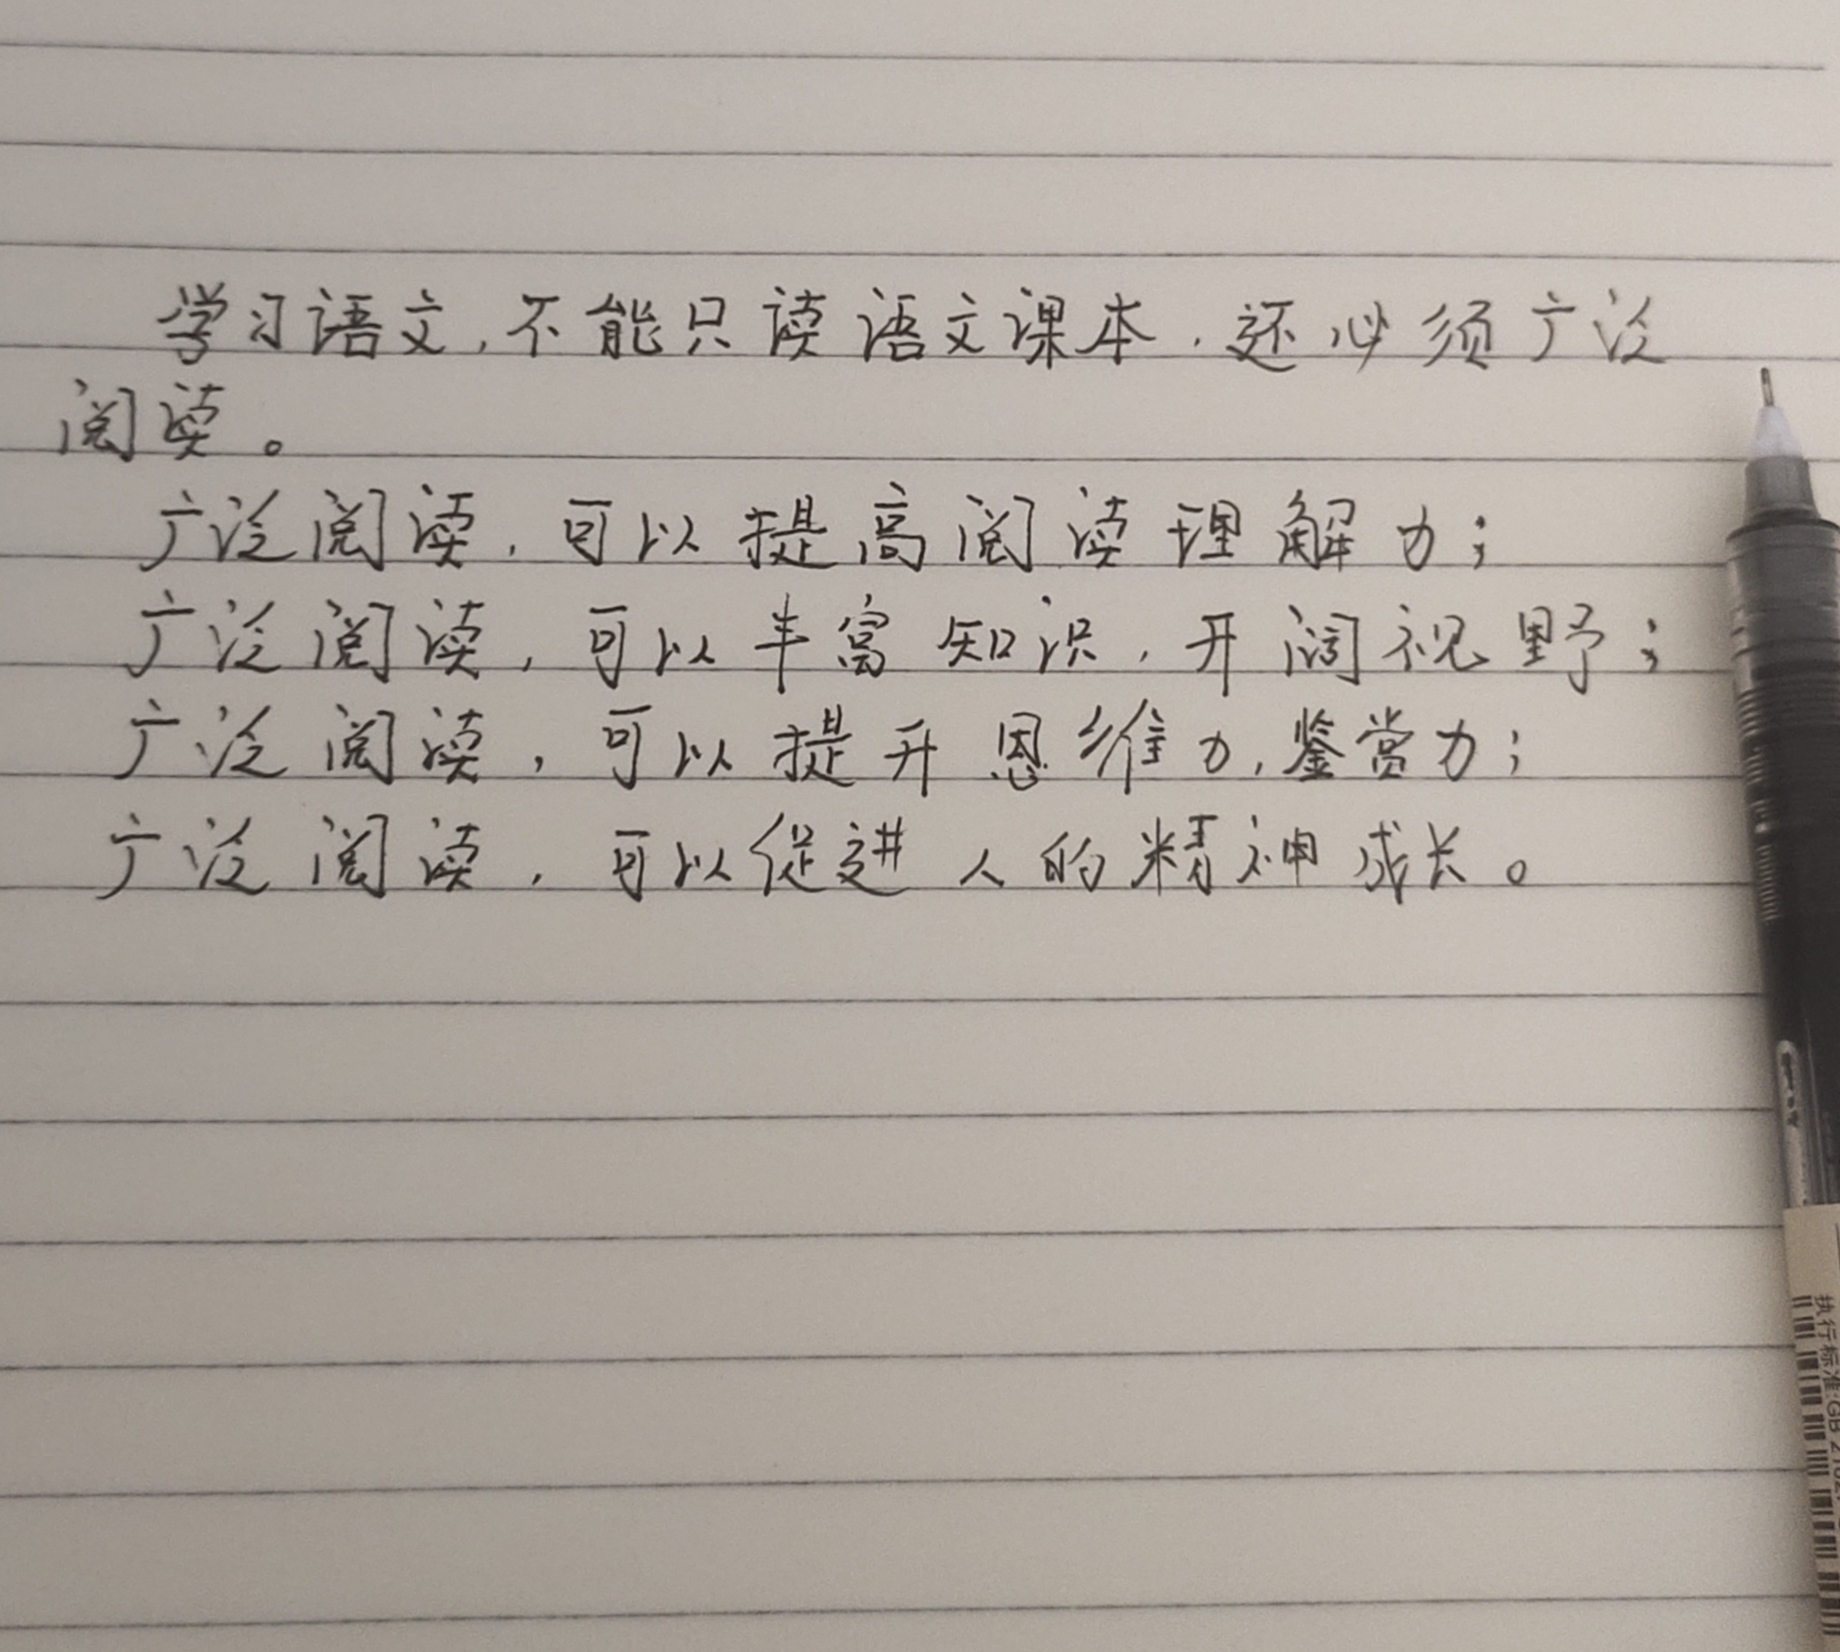 学习语文,不能只读语文课本,还必须广泛
阅读。
广泛阅读,可以提高阅读理解力;
广泛阅读,可以丰富知识,开阔视野;
广泛阅读,可以提升思维力,鉴赏力;
广泛阅读,可以促进人的精神成长。
执行标准:GB